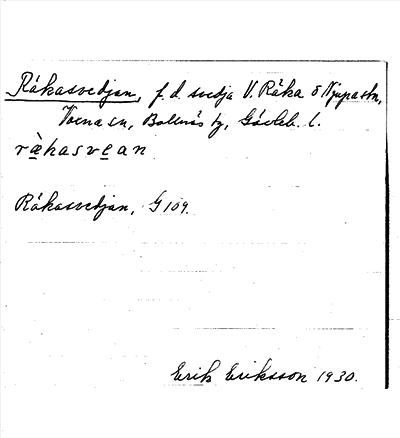 Råkasvedjan, f.d. svedja V. Råka o Njupastn,
Voxna sn, Bollnäs tg, Gävleb. l.
ràkasvean
Råkasvedjan, G 109.
Erik Eriksson 1930.